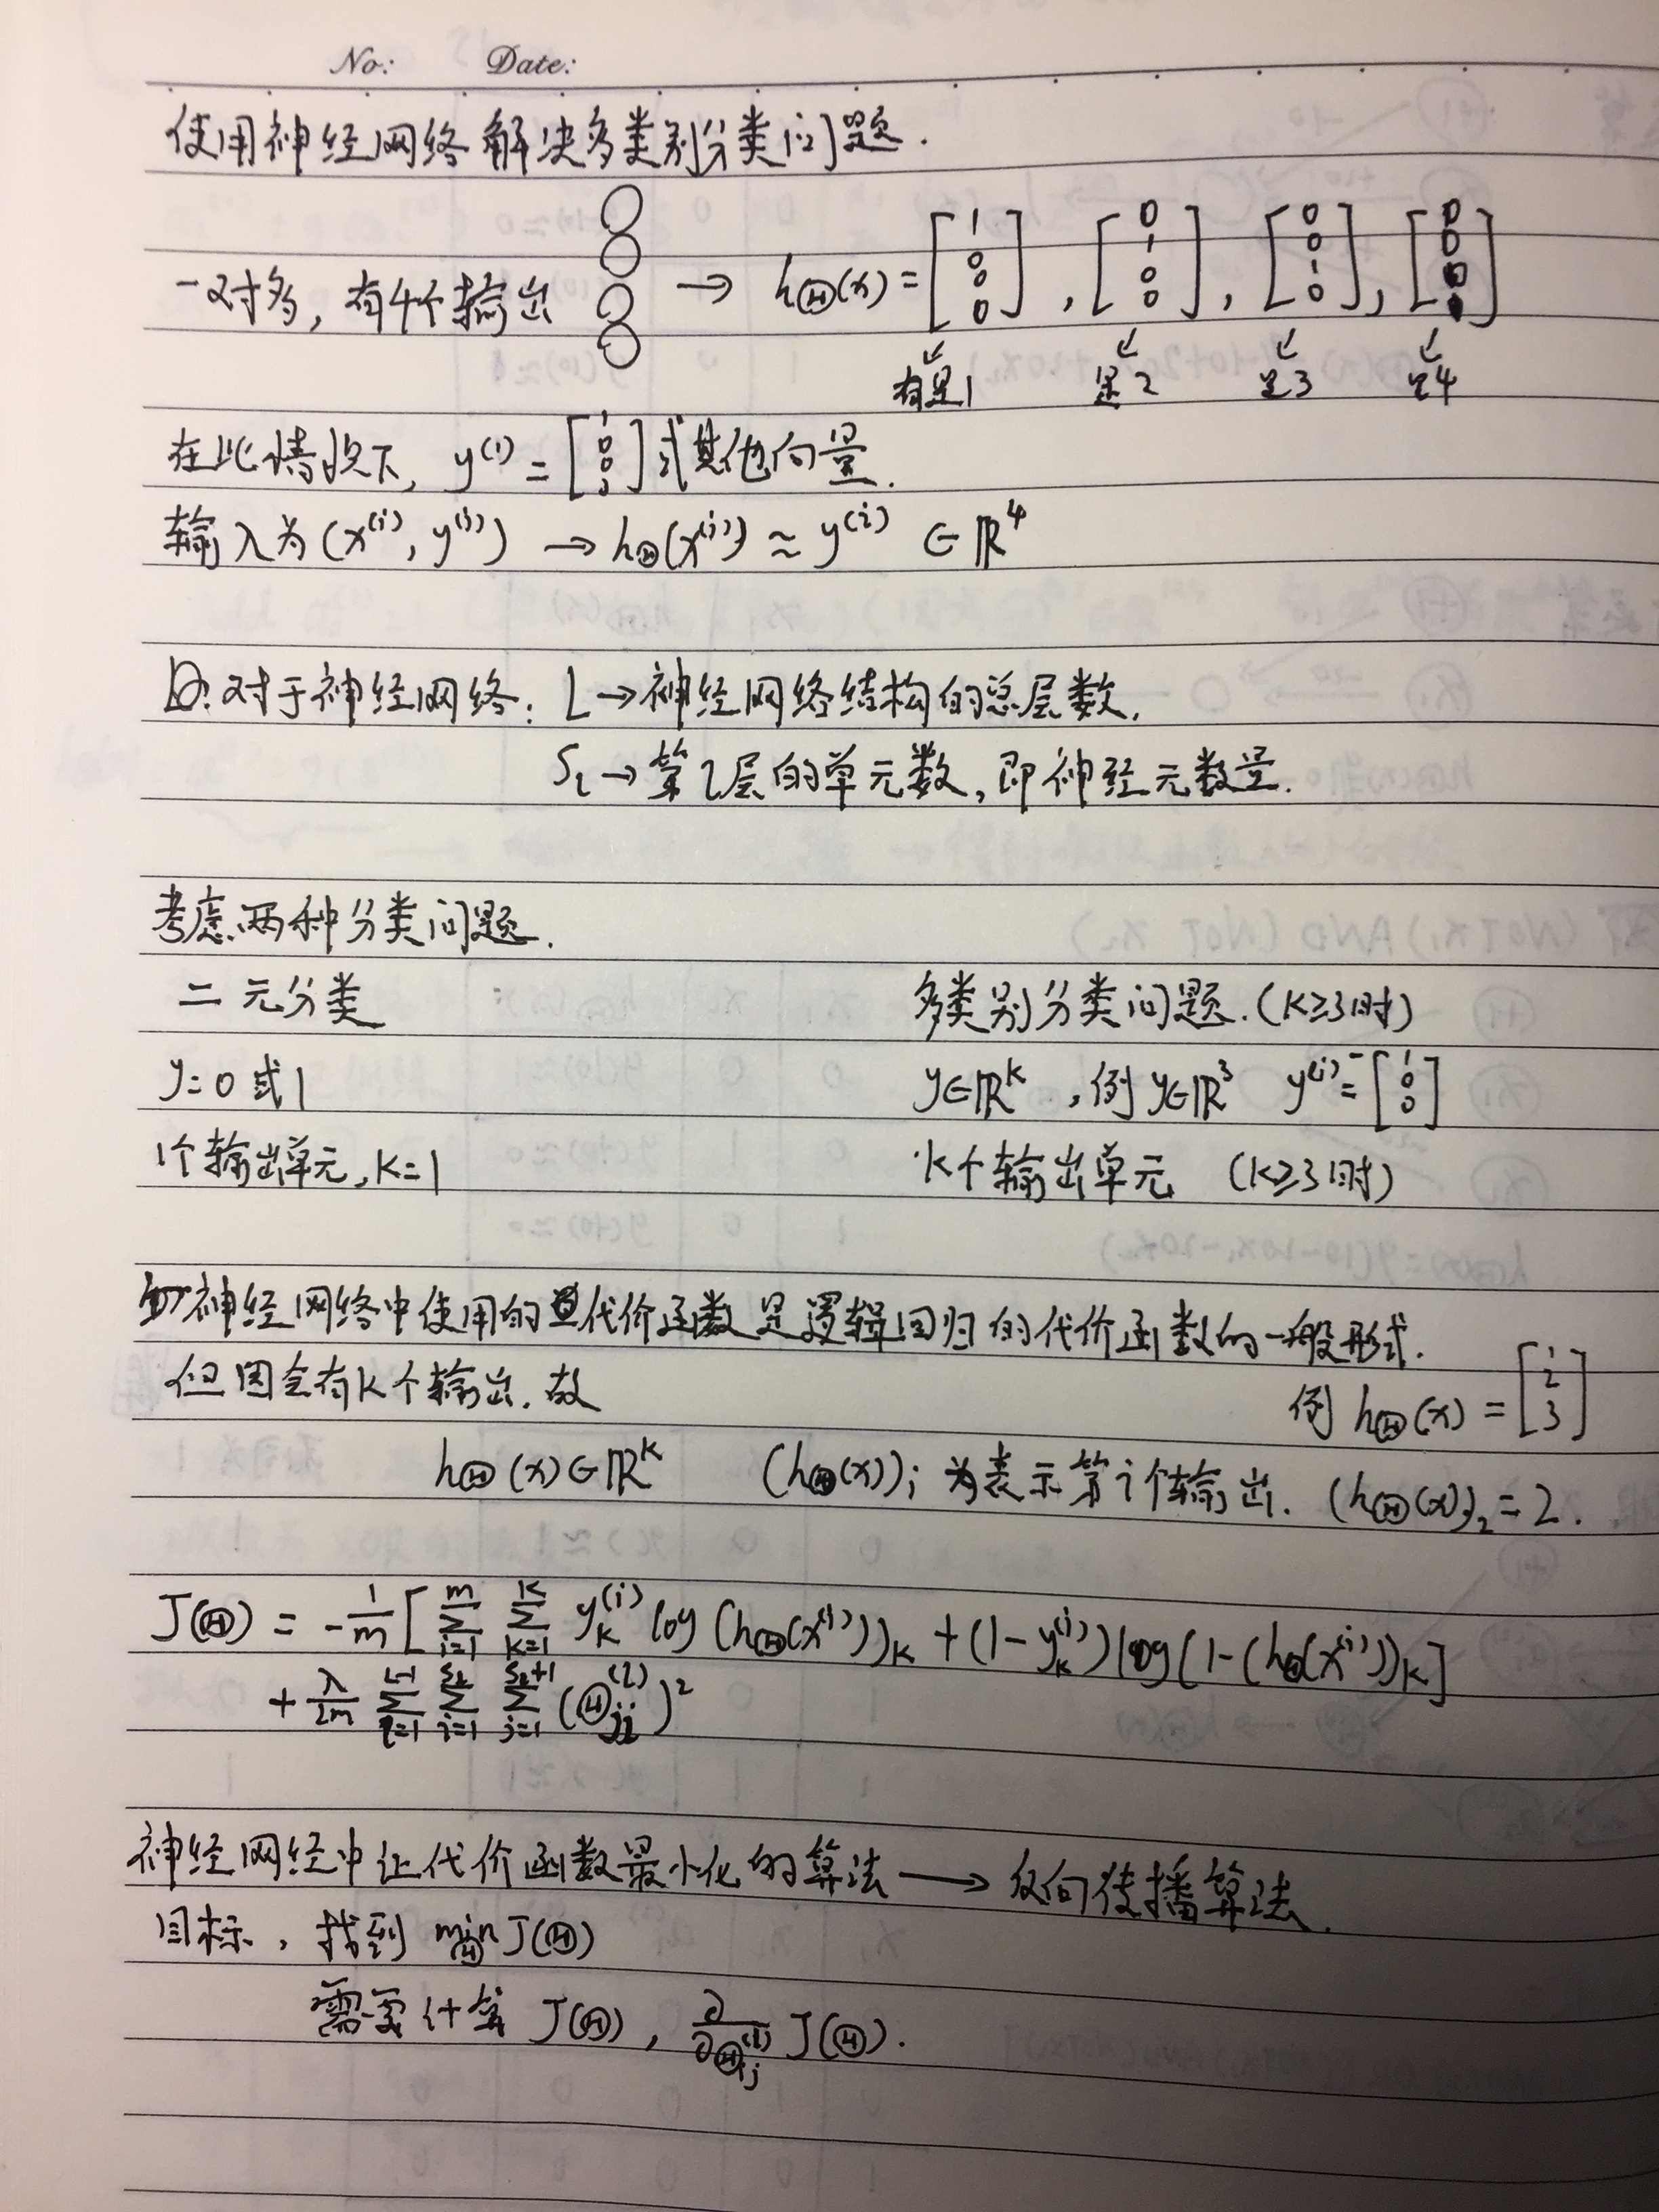 No: Date:
使用神经网络解决多类别分类问题.
一对多, 有4个输出 → hΘ(x) = [1 0 0 0], [0 1 0 0], [0 0 1 0], [0 0 0 1]
是1 是2 是3 是4
在此情况下, y⁽ⁱ⁾ = [1 0 0 0] 或其他向量.
输入为(x⁽ⁱ⁾, y⁽ⁱ⁾) → hΘ(x⁽ⁱ⁾) ≈ y⁽ⁱ⁾ ∈ ℝ⁴
对于神经网络: L → 神经网络结构的总层数.
Sₗ → 第l层的单元数, 即神经元数量.
考虑两种分类问题.
二元分类 多类别分类问题. (K≥3时)
y=0或1 y∈ℝᴷ, 例 y∈ℝ³ y⁽ⁱ⁾ = [1 0 0]
1个输出单元, K=1 K个输出单元 (K≥3时)
神经网络中使用的代价函数是逻辑回归的代价函数的一般形式.
但因会有K个输出. 故 例 hΘ(x) = [1 2 3]
hΘ(x)∈ℝᴷ (hΘ(x))ᵢ 为表示第i个输出. (hΘ(x))₂ = 2.
J(Θ) = -1/m [ Σᵢ₌₁ᵐ Σₖ₌₁ᴷ yₖ⁽ⁱ⁾ log (hΘ(x⁽ⁱ⁾))ₖ + (1-yₖ⁽ⁱ⁾) log(1-(hΘ(x⁽ⁱ⁾))ₖ]
+ λ/2m Σ_{l=1}^{L-1} Σ_{i=1}^{Sₗ} Σ_{j=1}^{Sₗ+1} (Θ_{ji}^{(l)})²
神经网经中让代价函数最小化的算法 → 反向传播算法.
目标, 找到 min_Θ J(Θ)
需要计算 J(Θ), ∂/∂Θ_{ij}^{(l)} J(Θ).